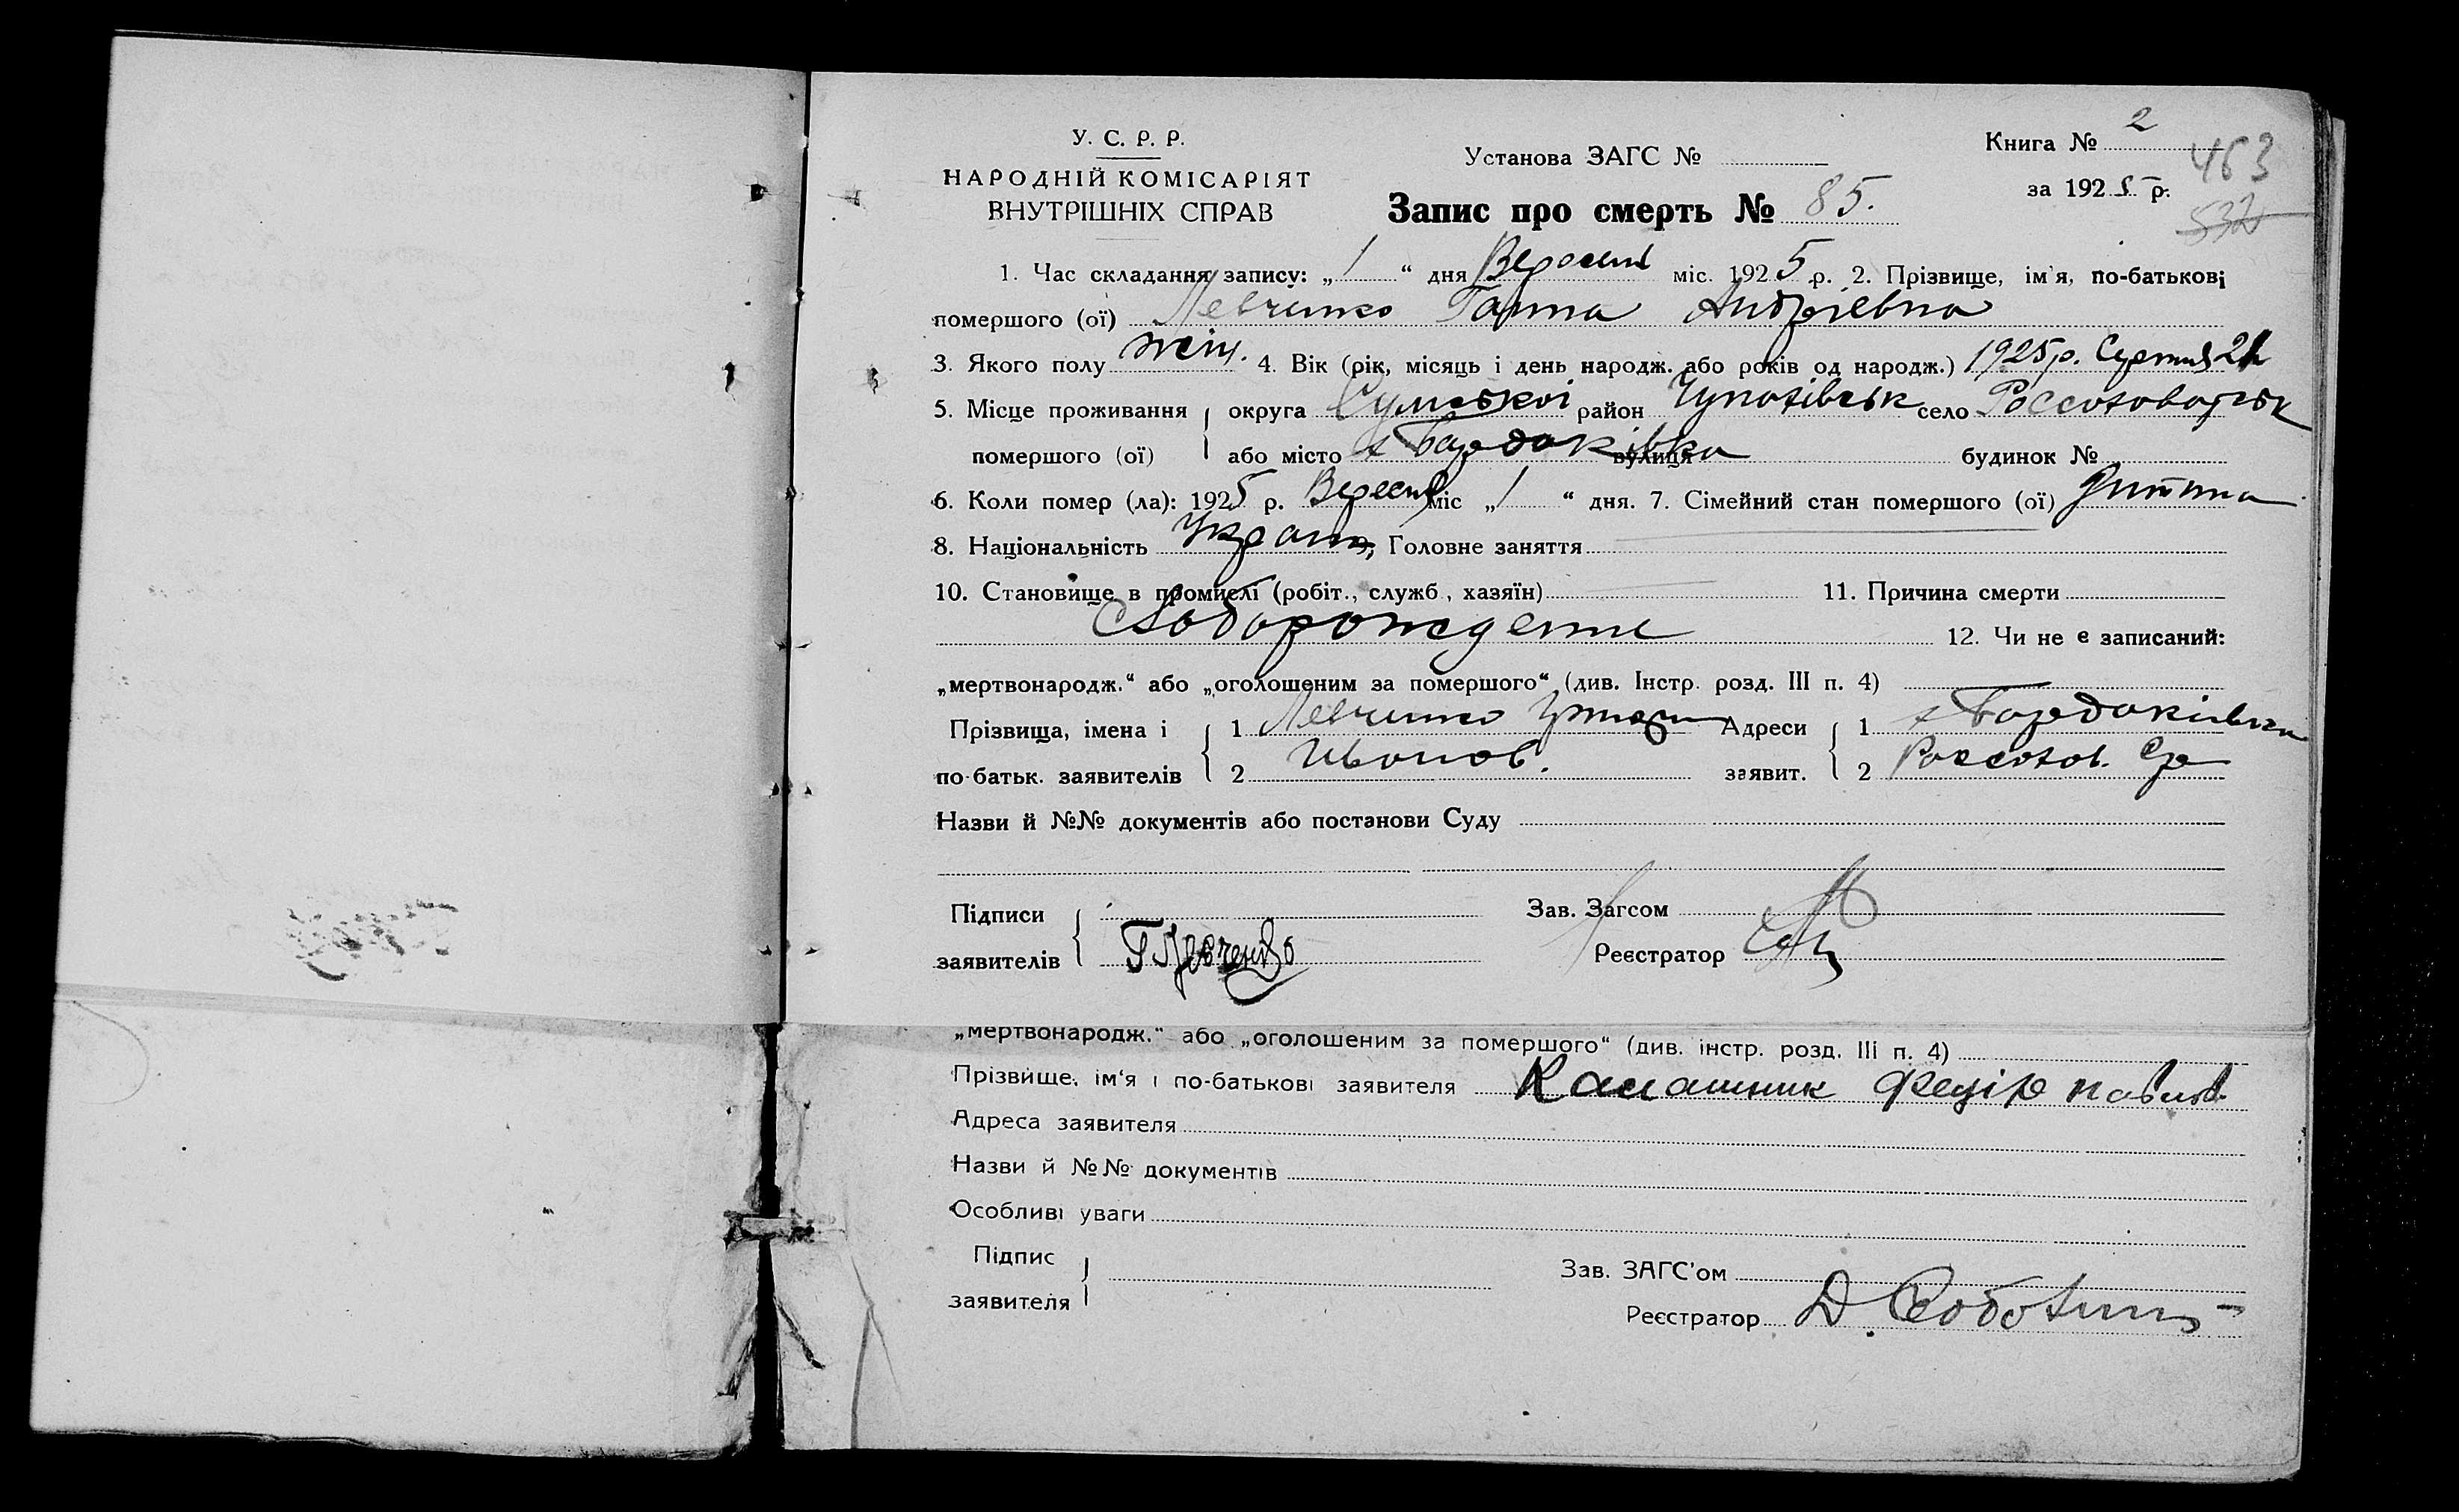 У. С. Р. Р.
НАРОДНІЙ КОМІСАРІЯТ
ВНУТРІШНІХ СПРАВ
Установа ЗАГС №
Запис про смерть № 85.
Книга № 2
463
за 1925 р.
532
1. Час складання запису: „1“ дня Вересня міс. 1925 р. 2. Прізвище, ім'я, по-батькові
помершого (ої) Левченко Ганна Андріевна
3. Якого полу жін. 4. Вік (рік, місяць і день народж. або років од народж.) 1925 р. Серпня 21
5. Місце проживання округа Сумської район село
помершого (ої) або місто х Бардаківка вулиця будинок №
6. Коли помер (ла): 1925 р. Вересня міс „1“ дня. 7. Сімейний стан помершого (ої) Дитина
8. Національність Україн, Головне заняття
10. Становище в промислі (робіт., служб., хазяїн) 11. Причина смерти
Слаборождение 12. Чи не є записаний:
„мертвонародж.“ або „оголошеним за помершого“ (див. Інстр. розд. III п. 4)
Прізвища, імена і 1 Левченко Адреси 1 х Бардаківка
по-батьк. заявителів 2 Иванов. заявит. 2
Назви й №№ документів або постанови Суду
Підписи Зав. Загсом
заявителів Г Левченко Реєстратор
„мертвонародж.“ або „оголошеним за помершого“ (див. інстр. розд. III п. 4)
Прізвище, ім'я і по-батькові заявителя Калашник Федір Павлов.
Адреса заявителя
Назви й №№ документів
Особливі уваги
Підпис Зав. ЗАГС'ом
заявителя Реєстратор Д.